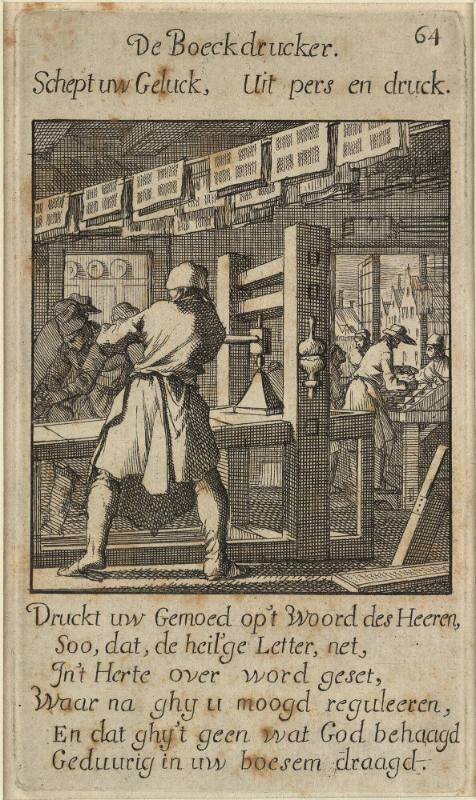 64
De Boeckdrucker.
Schept uw Geluck, Uit pers en druck.
Druckt uw Gemoed op't Woord des Heeren,
Soo, dat, de heil'ge Letter, net,
In't Herte over word geset,
Waar na ghy u moogd reguleeren,
En dat ghy't geen wat God behaagd
Geduurig in uw boesem draagd.